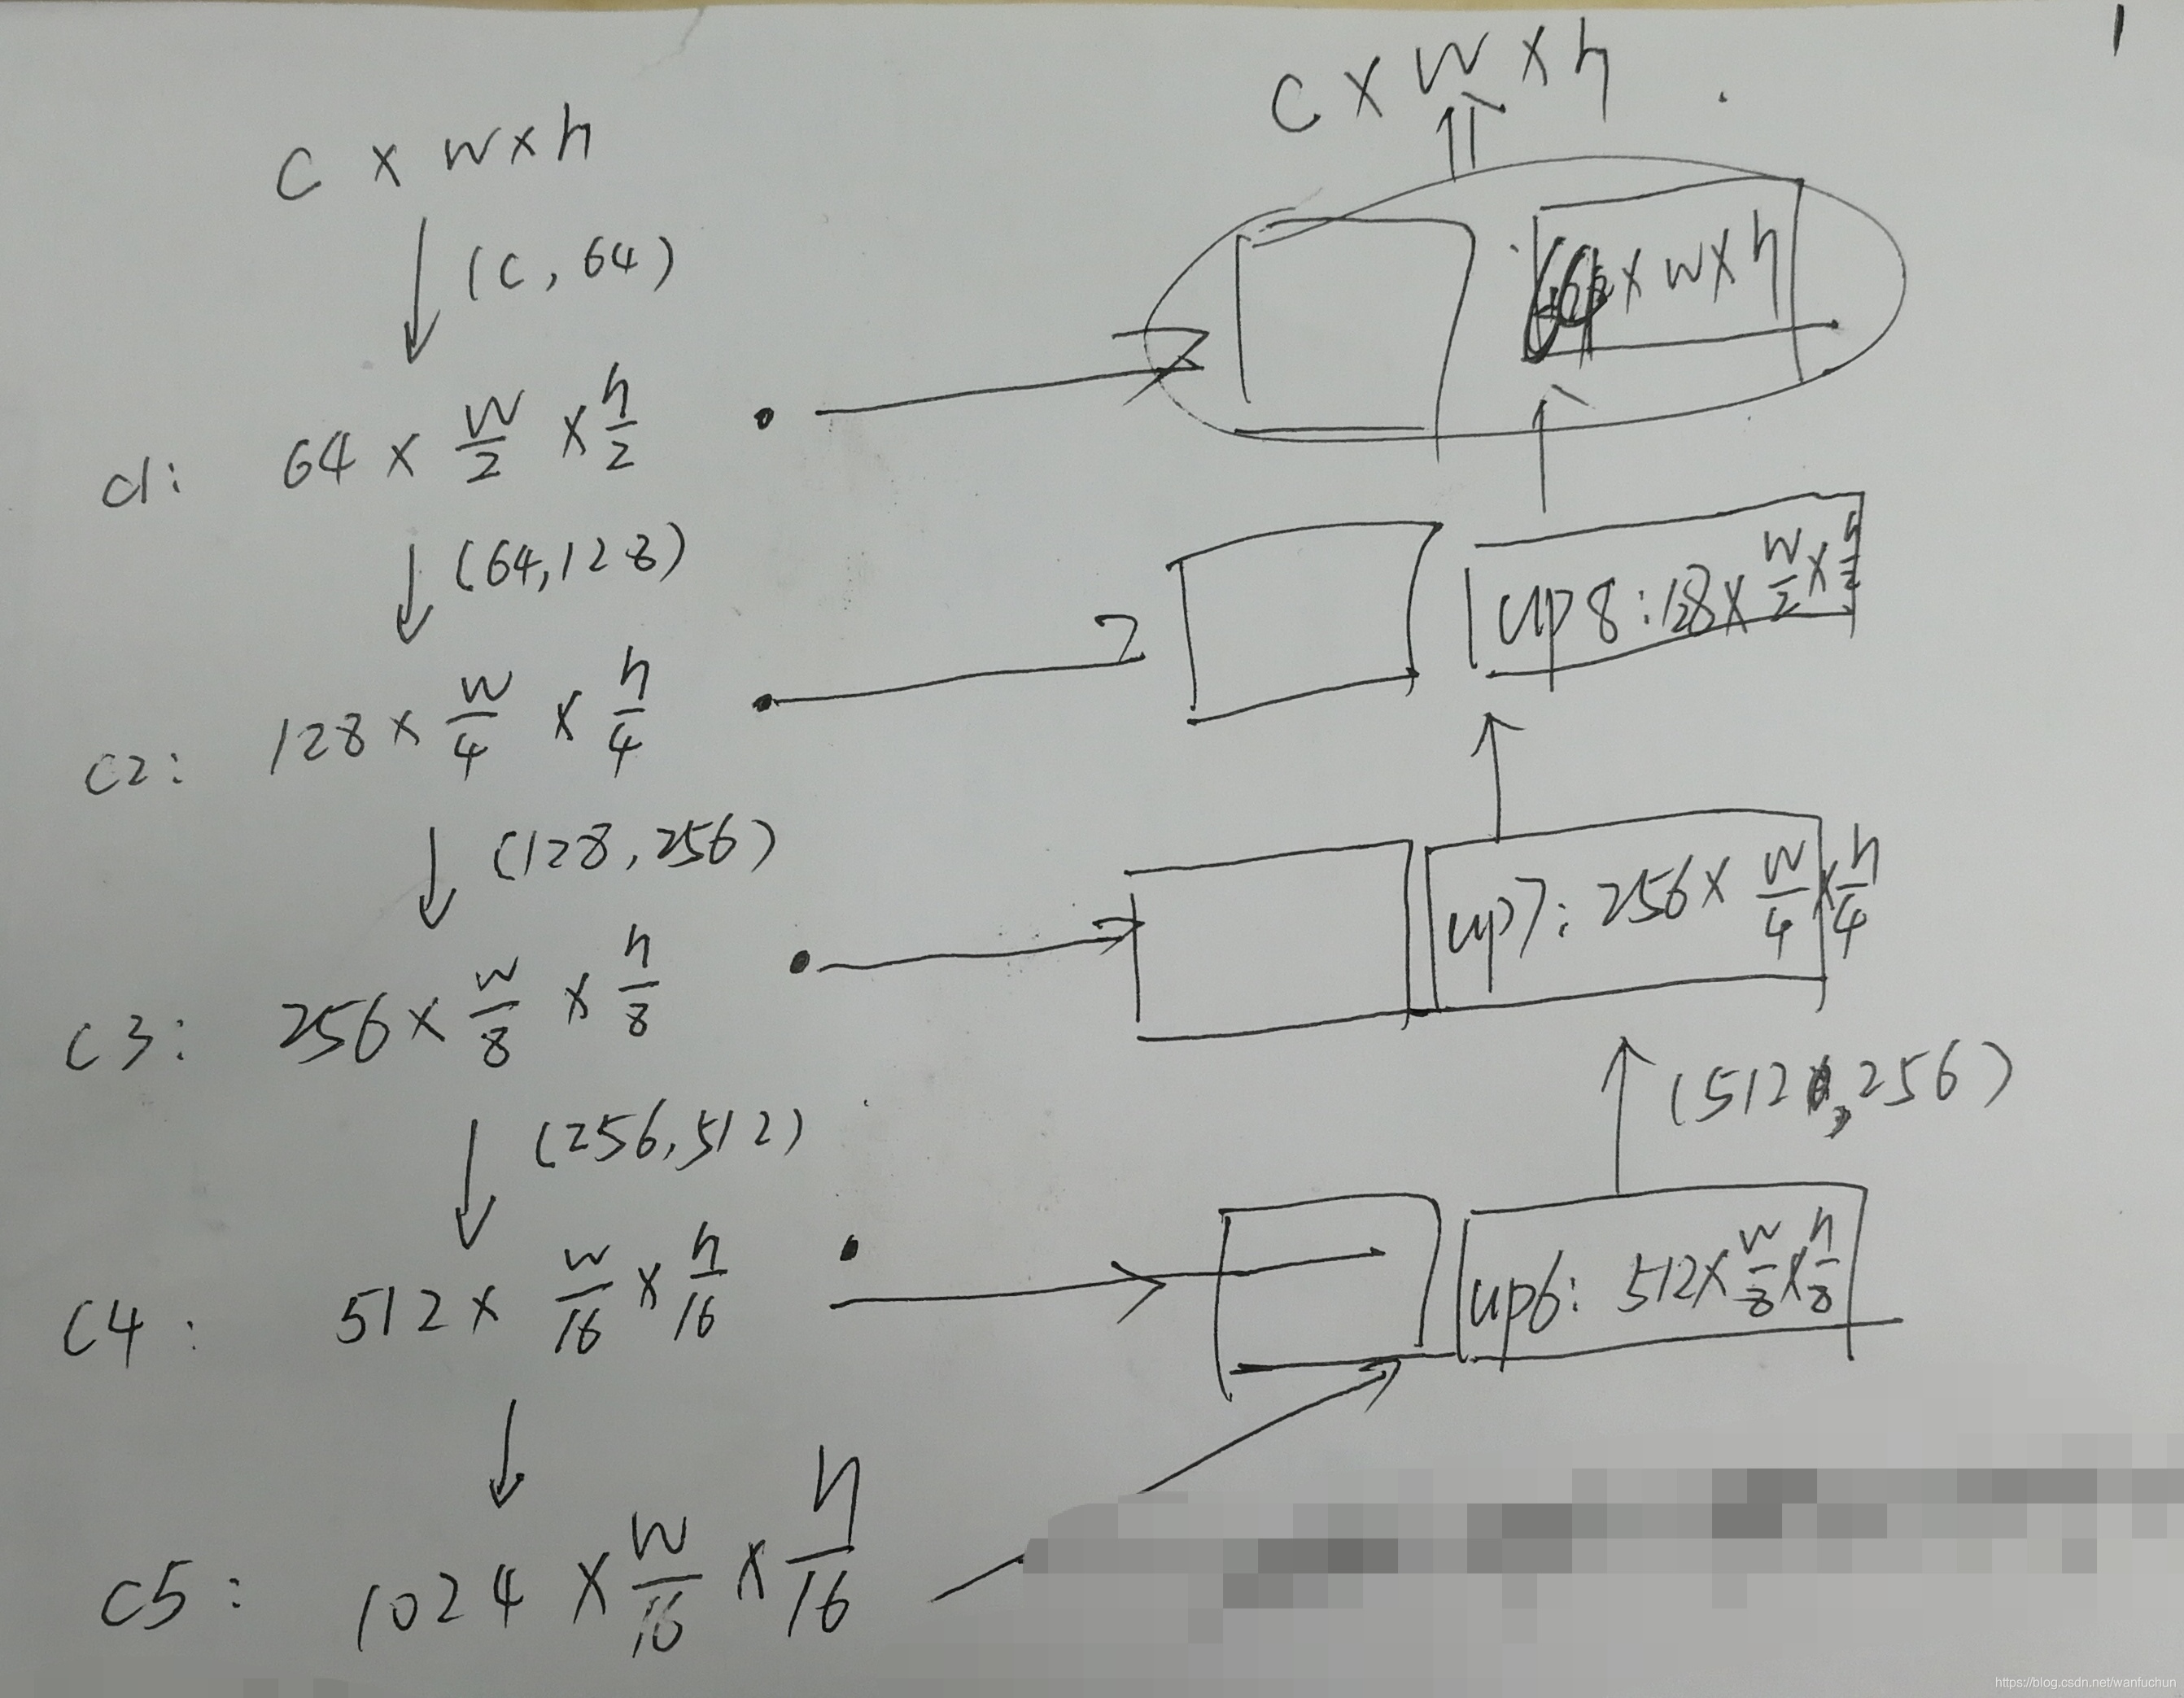 C × W × h
(C, 64)
C1: 64 × W/2 × h/2
(64, 128)
C2: 128 × W/4 × h/4
(128, 256)
C3: 256 × W/8 × h/8
(256, 512)
C4: 512 × W/16 × h/16
C5: 1024 × W/16 × h/16
C × W × h
64 × W × h
up8: 128 × W/2 × h/2
up7: 256 × W/4 × h/4
(512, 256)
up6: 512 × W/8 × h/8
https://blog.csdn.net/wanfuchun